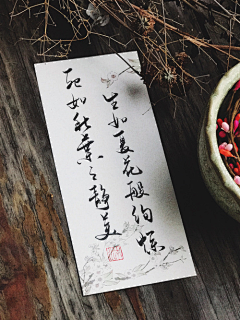 生如夏花般绚烂
死如秋叶之静美